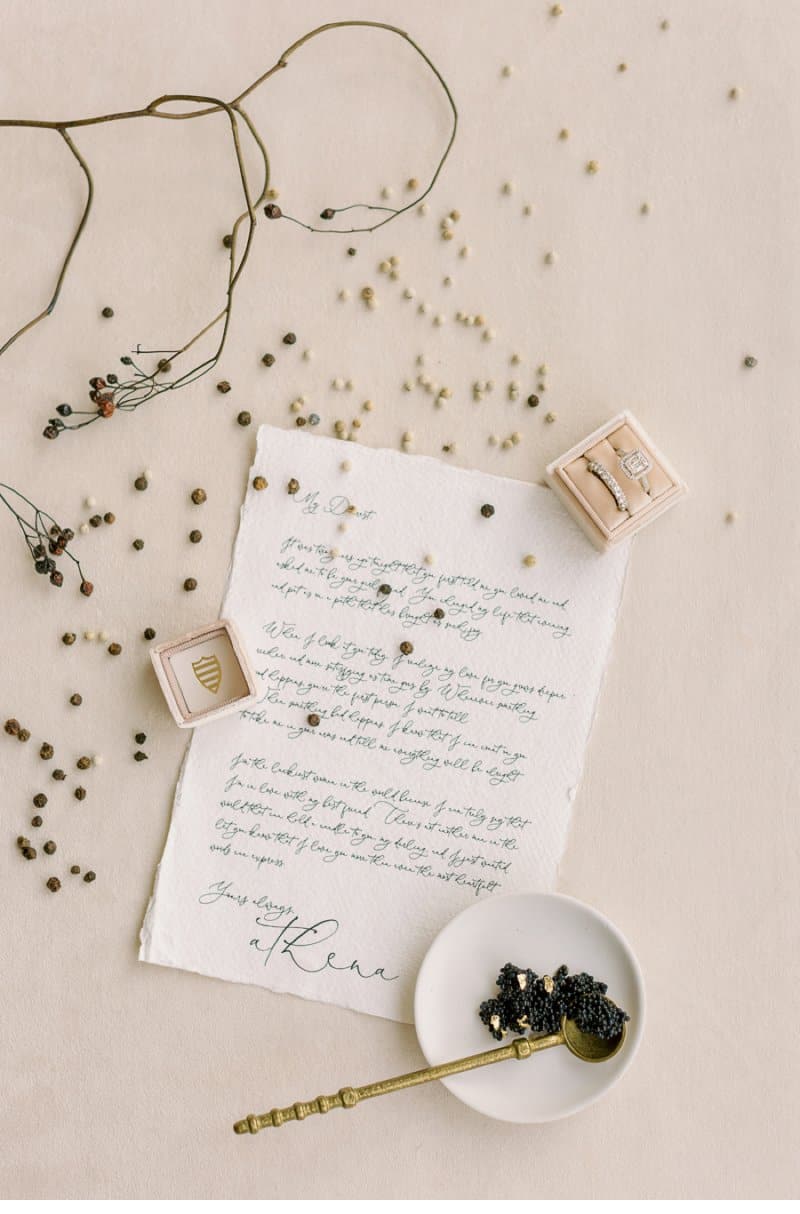 My Dearest,
It was two years ago tonight that you first told me you loved me and
asked me to be your girlfriend. You changed my life that evening
and put us on a path that has brought us
When I look at you today, I realize my love for you grows deeper
richer and more satisfying as time goes by. Whenever something
happens, you're the first person I want to tell.
When something bad happens, I know that I can count on you
to take me in your arms and tell me everything will be alright.
I'm the luckiest woman in the world because I can truly say that
I'm in love with my best friend. There's not another man in the
world that can hold a candle to you my darling, and I just wanted
let you know that I love you more than even the most heartfelt
words can express.
Yours always,
athena